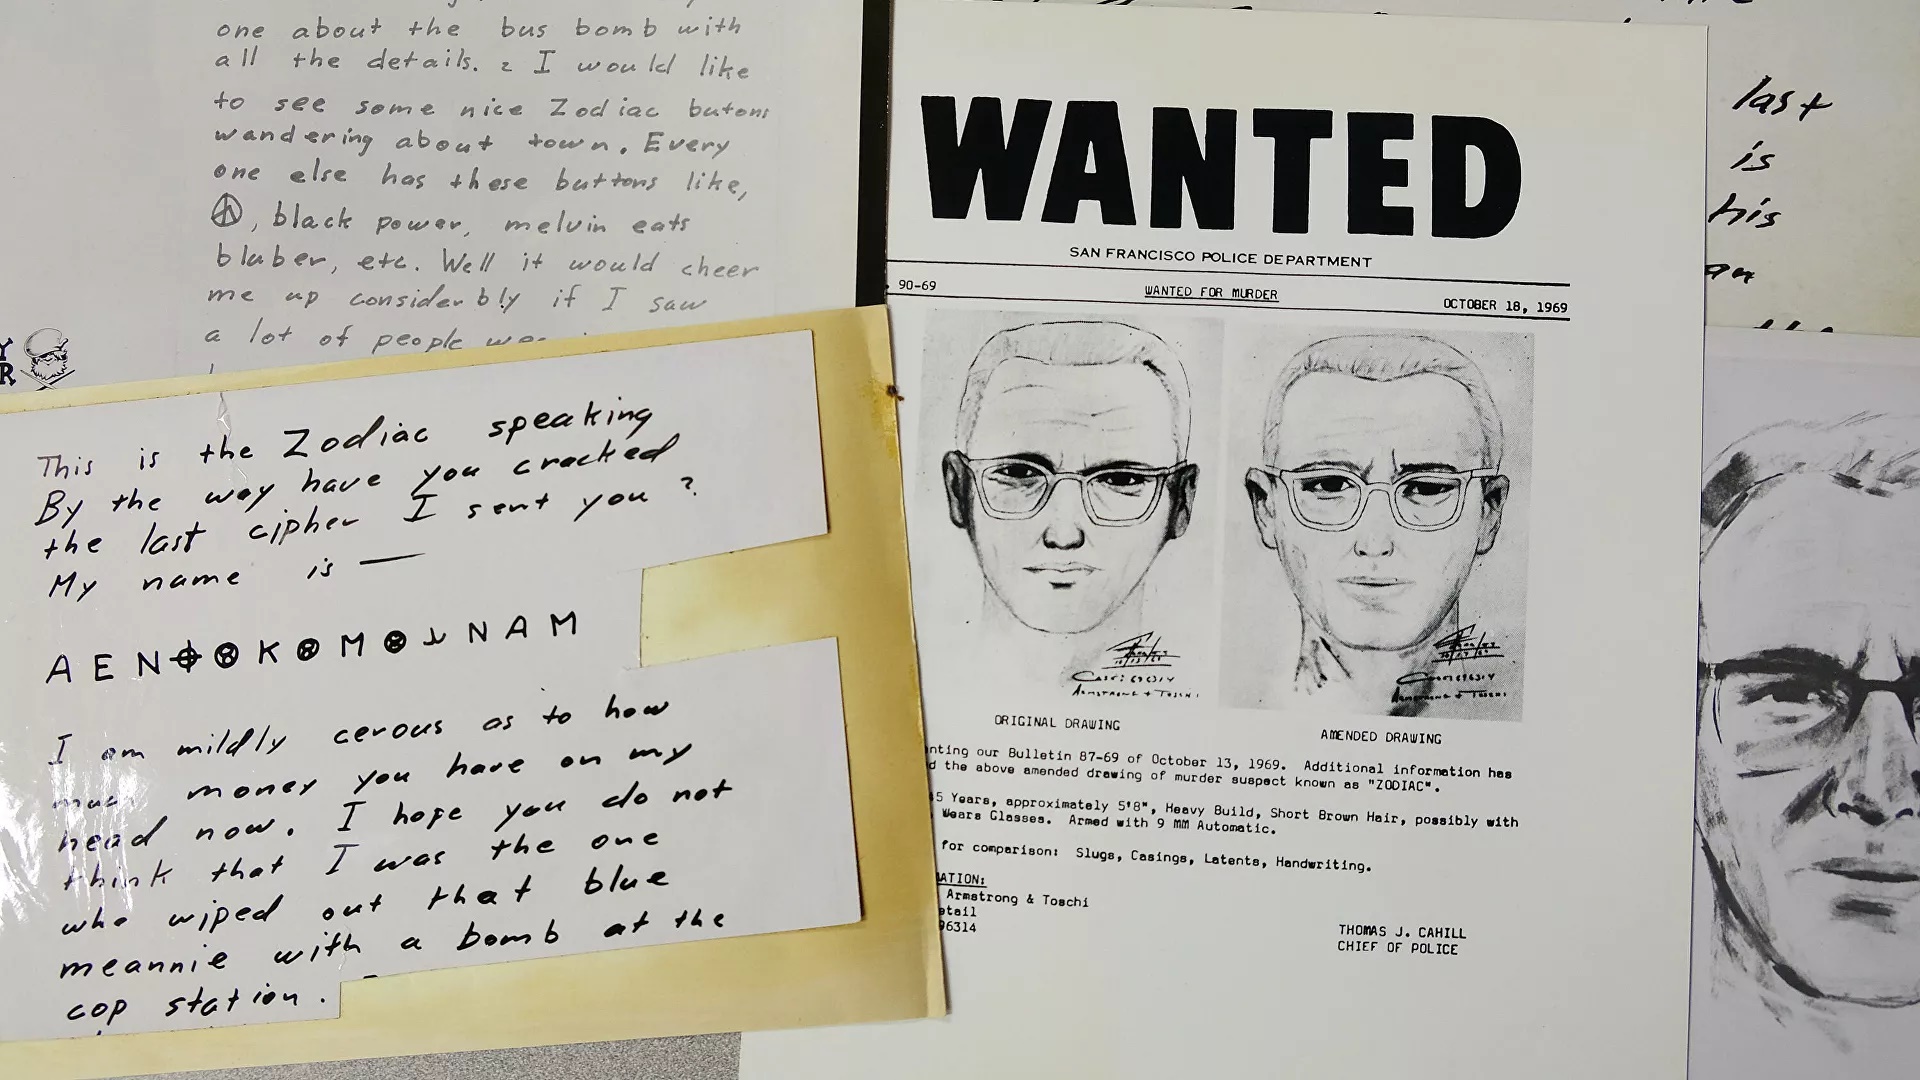 one about the bus bomb with
all the details. I would like
to see some nice Zodiac butons
wandering about town. Every
one else has these buttons like,
, black power, melvin eats
bluber, etc. Well it would cheer
me up considerbly if I saw
a lot of people
Y
R
This is the Zodiac speaking
By the way have you cracked
the last cipher I sent you ?
My name is —
A E N ⌖ ⊗ K ⊗ M ⊗ ⅄ N A M
I am mildly cerous as to how
much money you have on my
head now. I hope you do not
think that I was the one
who wiped out that blue
meannie with a bomb at the
cop station.
WANTED
SAN FRANCISCO POLICE DEPARTMENT
90-69 WANTED FOR MURDER OCTOBER 18, 1969
ARMSTRONG + TOSCHI
ARMSTRONG + TOSCHI
ORIGINAL DRAWING AMENDED DRAWING
nting our Bulletin 87-69 of October 13, 1969. Additional information has
d the above amended drawing of murder suspect known as "ZODIAC".
5 Years, approximately 5'8", Heavy Build, Short Brown Hair, possibly with
Wears Glasses. Armed with 9 MM Automatic.
for comparison: Slugs, Casings, Latents, Handwriting.
ATION:
Armstrong & Toschi
etail
96314
THOMAS J. CAHILL
CHIEF OF POLICE
last
is
his
an